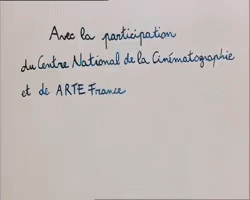 Avec la participation
du Centre National de la Cinématographie
et de ARTE France